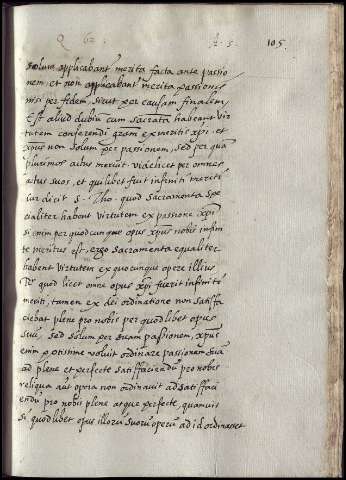 Q 62. A. 5. 105
solum applicabant merita facta ante passio
nem, et non applicabant merita passionis
nisi per fidem, sicut per causam finalem
Est aliud dubium cum sacrata habeant vir
tutem conferendi gram ex meritis xpi, et
xpus non solum per passionem, sed per qua
plurimos actus meruit videlicet per omnes
actus suos, et quilibet fuit infiniti meriti
cur dicit S. Tho. quod sacramenta spe
cialiter habent virtutem ex passione xpi
si enim per quodcunque opus xpus nobis infini
te meritus est, ergo sacramenta equaliter
habent virtutem ex quocunque opere illius
Rr quod licet omne opus xpi fuerit infiniti
meriti, tamen ex dei ordinatione non satisfa
ciebat plene pro nobis per quodlibet opus
suu, sed solum per suam passionem, xpus
enim potissime voluit ordinare passionem sua
ad plene et perfecte satisfaciendu pro nobis
reliqua aut opera non ordinavit ad satisfaci
endu pro nobis plene atque perfecte, quamvis
si quodlibet opus illoru suoru operu ad id ordinasset